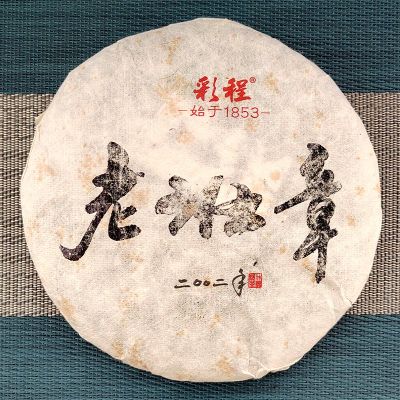 彩程®
始于1853
老班章
二〇〇二年